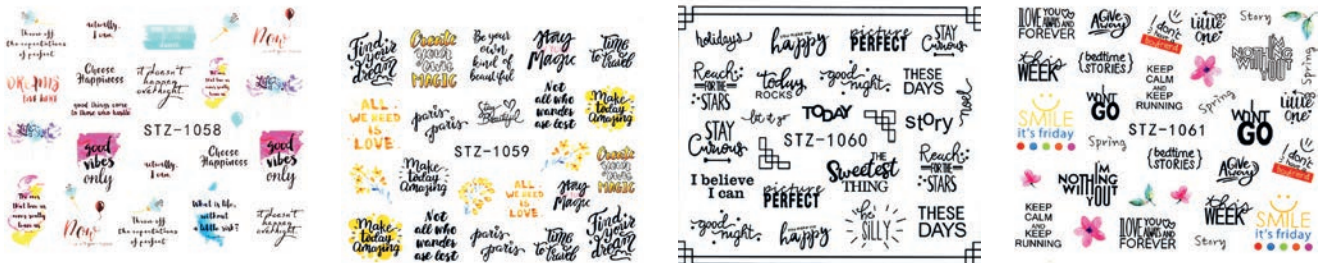 Throw off
the expectations
of perfect
actually,
I can.
Now
DREAMS
Choose
Happiness
it doesn't
happen
overnight
good things come
to those who hustle
STZ-1058
good
vibes
only
actually,
I can.
Choose
Happiness
good
vibes
only
Now
Throw off
the expectations
of perfect
What is life,
without
a little risk?
it doesn't
happen
overnight
Find
your
dream
Create
your
own
MAGIC
Be your
own
kind of
beautiful
Stay
Magic
time
to travel
ALL
WE NEED
IS
LOVE
paris-
paris
Stay
Beautiful
Not
all who
wander
are lost
Make
today
Amazing
STZ-1059
Make
today
Amazing
ALL
WE NEED
IS
LOVE
Stay
Magic
Create
your
own
MAGIC
Make
today
Amazing
Not
all who
wander
are lost
paris-
paris
time
to travel
Find
your
dream
holidays
happy
picture
PERFECT
STAY
Curious
Reach
FOR THE
STARS
today
ROCKS
good
night
THESE
DAYS
noel
let it go
TODAY
story
STAY
Curious
STZ-1060
I believe
I can
picture
PERFECT
THE
Sweetest
THING
Reach
FOR THE
STARS
good
night
happy
be
SILLY
THESE
DAYS
I LOVE YOU
ALWAYS AND
FOREVER
Give
Away
I don't
need a
boyfriend
LITTLE
ONE
Story
this
WEEK
{bedtime
STORIES}
KEEP
CALM
AND
KEEP
RUNNING
I'M
NOTHING
WITHOUT
Spring
SMILE
it's friday
Spring
WONT
GO
I WONT
GO
Little
One
STZ-1061
Spring
{bedtime
STORIES}
Give
Away
I don't
need a
boyfriend
I'M
NOTHING
WITHOUT
YOU
KEEP
CALM
AND
KEEP
RUNNING
I LOVE YOU
ALWAYS AND
FOREVER
Story
this
WEEK
SMILE
it's friday